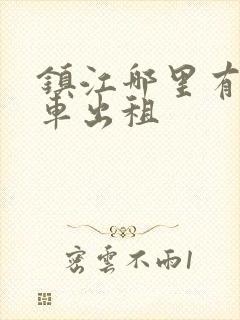 镇江哪里有
车出租
密雲不雨1